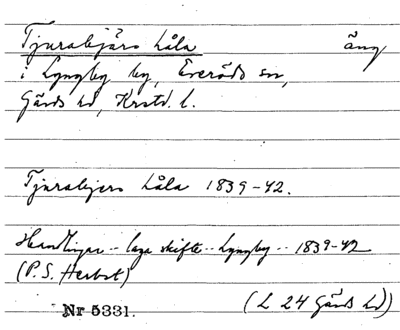 Tjurabjärs Låla äng
i Lyngby by, Everöds sn,
Gärds hd, Krstd. l.
Tjurabjers Låla 1839-42.
Handlingar .. laga skifte .. Lyngby .. 1839-42
(P. S. Herbst)
Nr 5331. (L 24 Gärds hd)